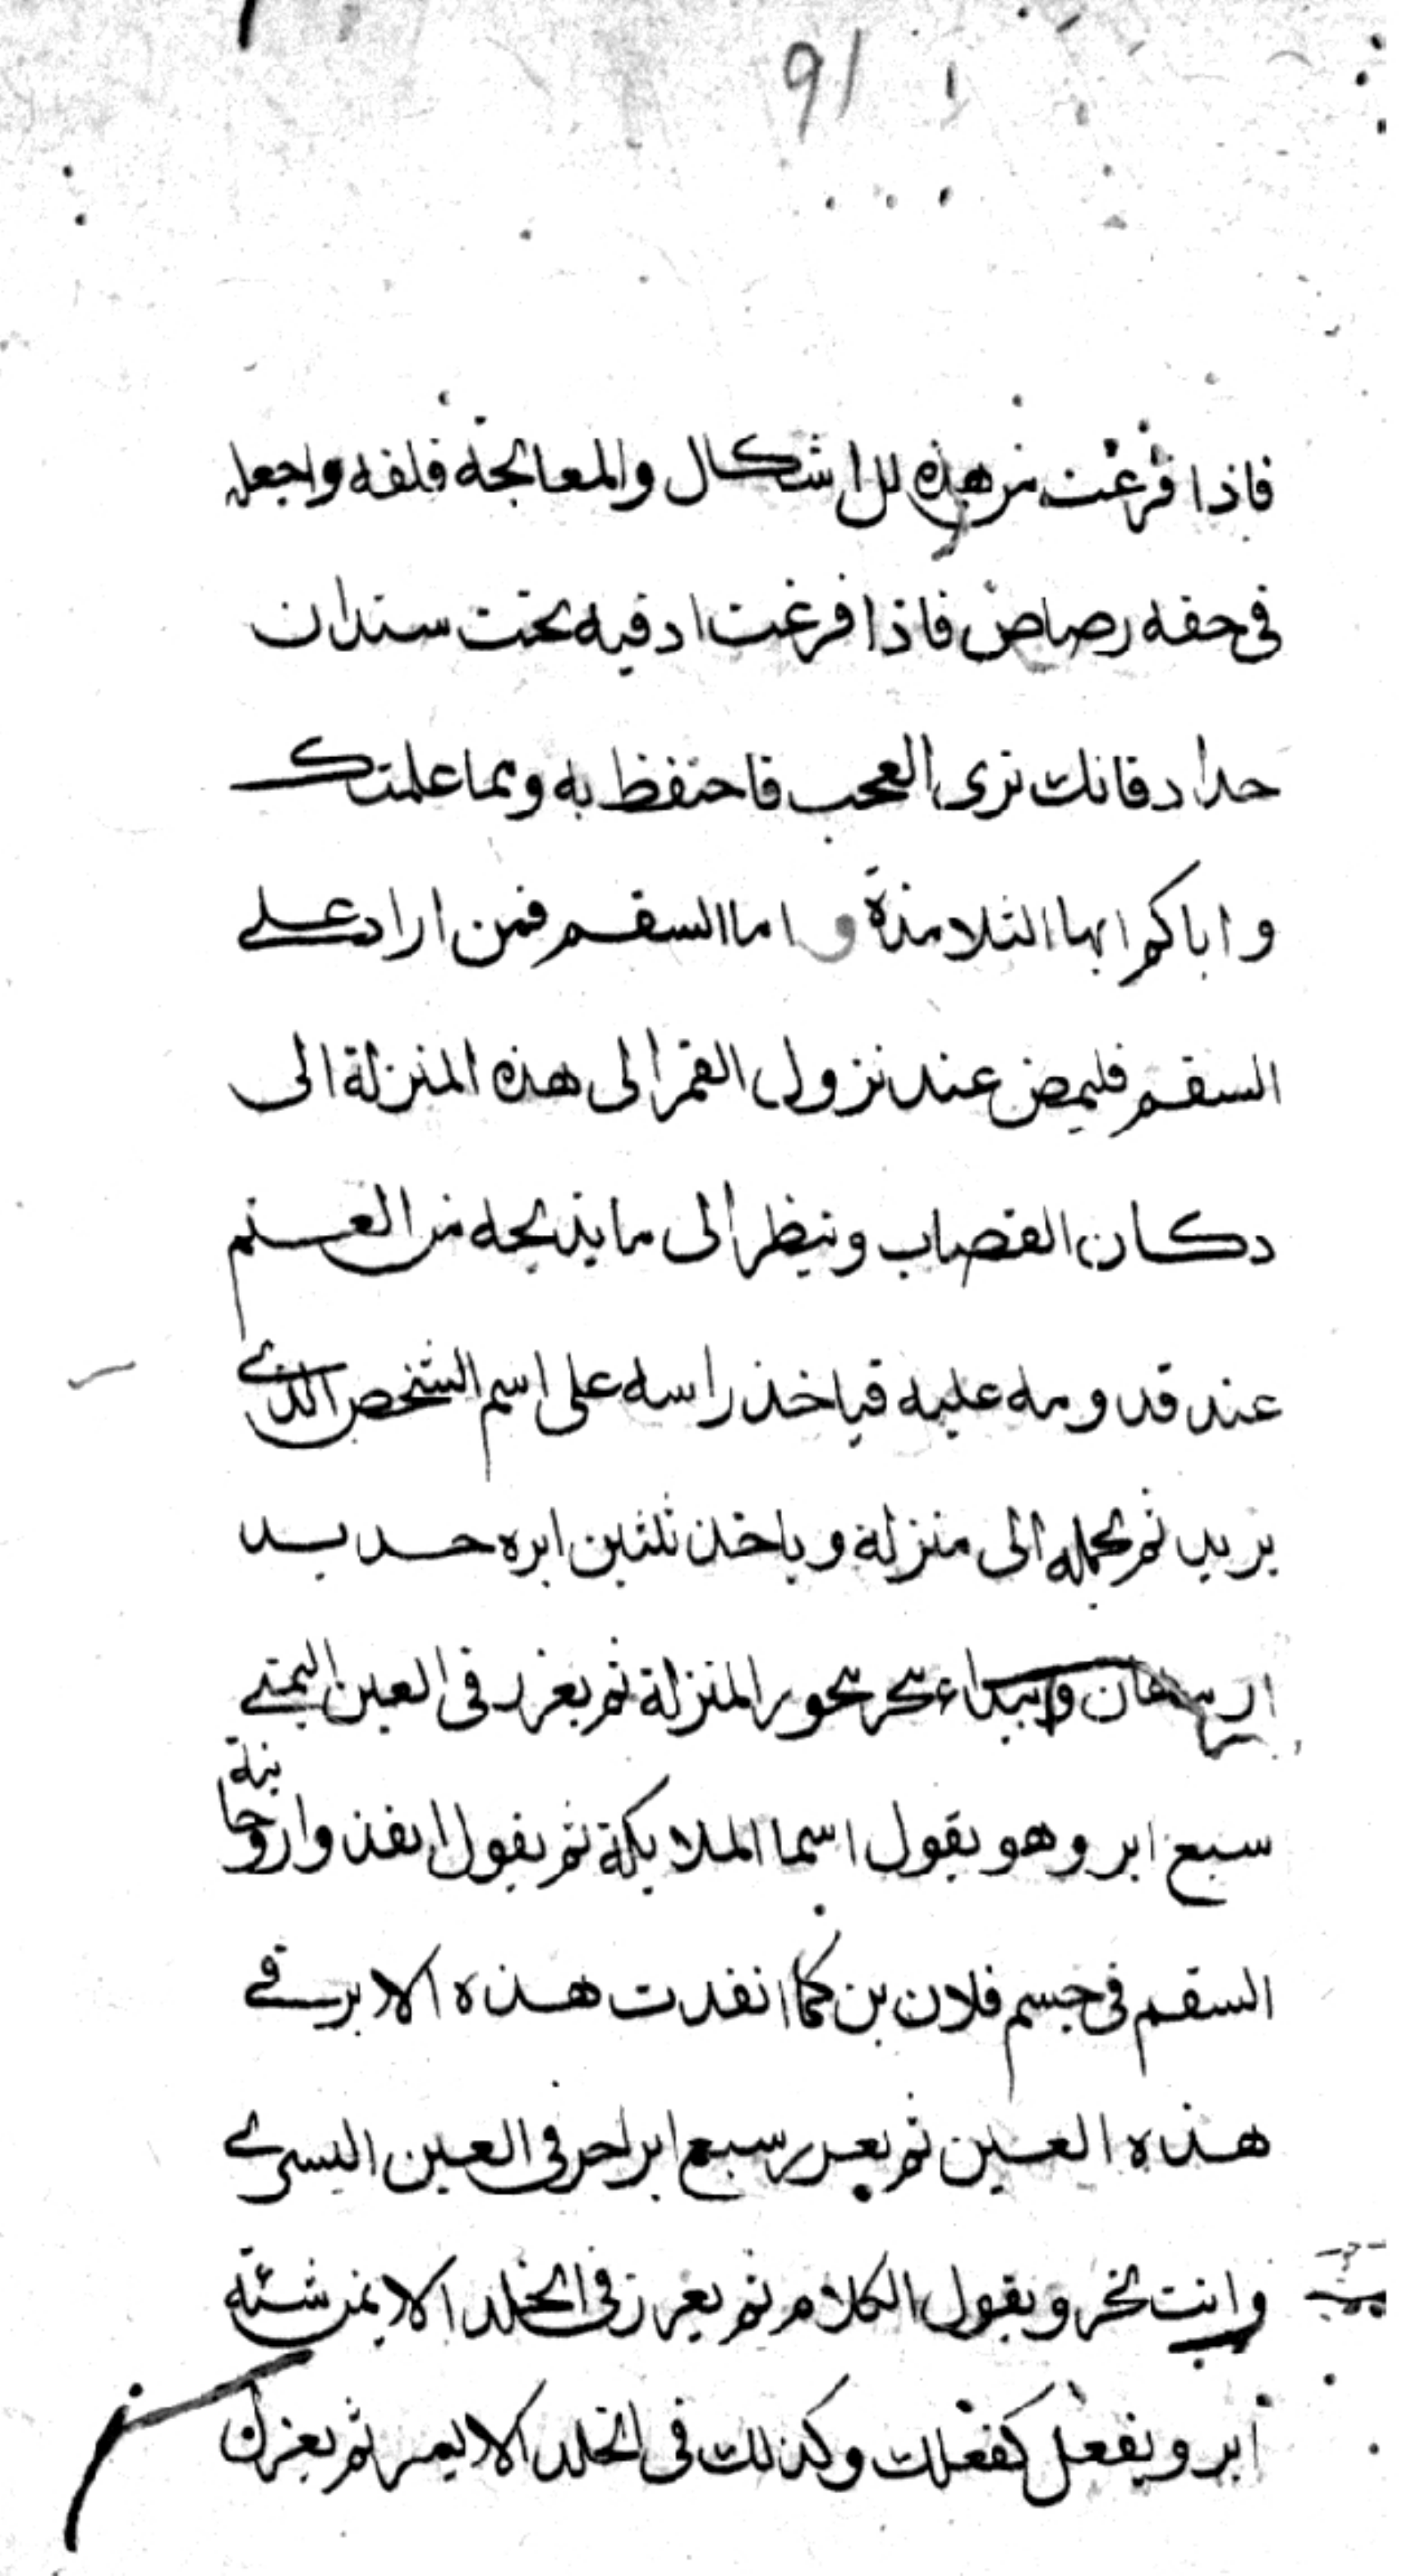 91
فاذا فرغت من هذه الاشكال والمعالجة فلفه واجعله
فى حقه رصاص فاذا فرغت ادفيه تحت سندان
حداد فانك ترى العجب فاحتفظ به وبما علمتك
واياكم ايها التلامذة و اما السقم فمن اراد على
السقم فليمض عند نزول القمر الى هذه المنزلة الى
دكان القصاب وينظر الى ما يذبحه من الغنم
عند قدومه عليه فياخذ راسه على اسم الشخص الذى
يريد ثم يحمله الى منزله وياخذ ثلثين ابره حديد
المنزلة ثم يغرز فى العين اليمنى
سبع ابر وهو يقول اسما الملايكة ثم يقول انفذوا روحانية
السقم فى جسم فلان بن كما انفدت هذه الابر فى
هذه العين ثم يعرر سبع ابر اخر فى العين اليسرى
وانت تبخر ويقول الكلام ثم يعرز فى الخلد الايمن ستة
ابر ويفعل كفعلك وكذلك فى الخلد الايسر ثم يغرز